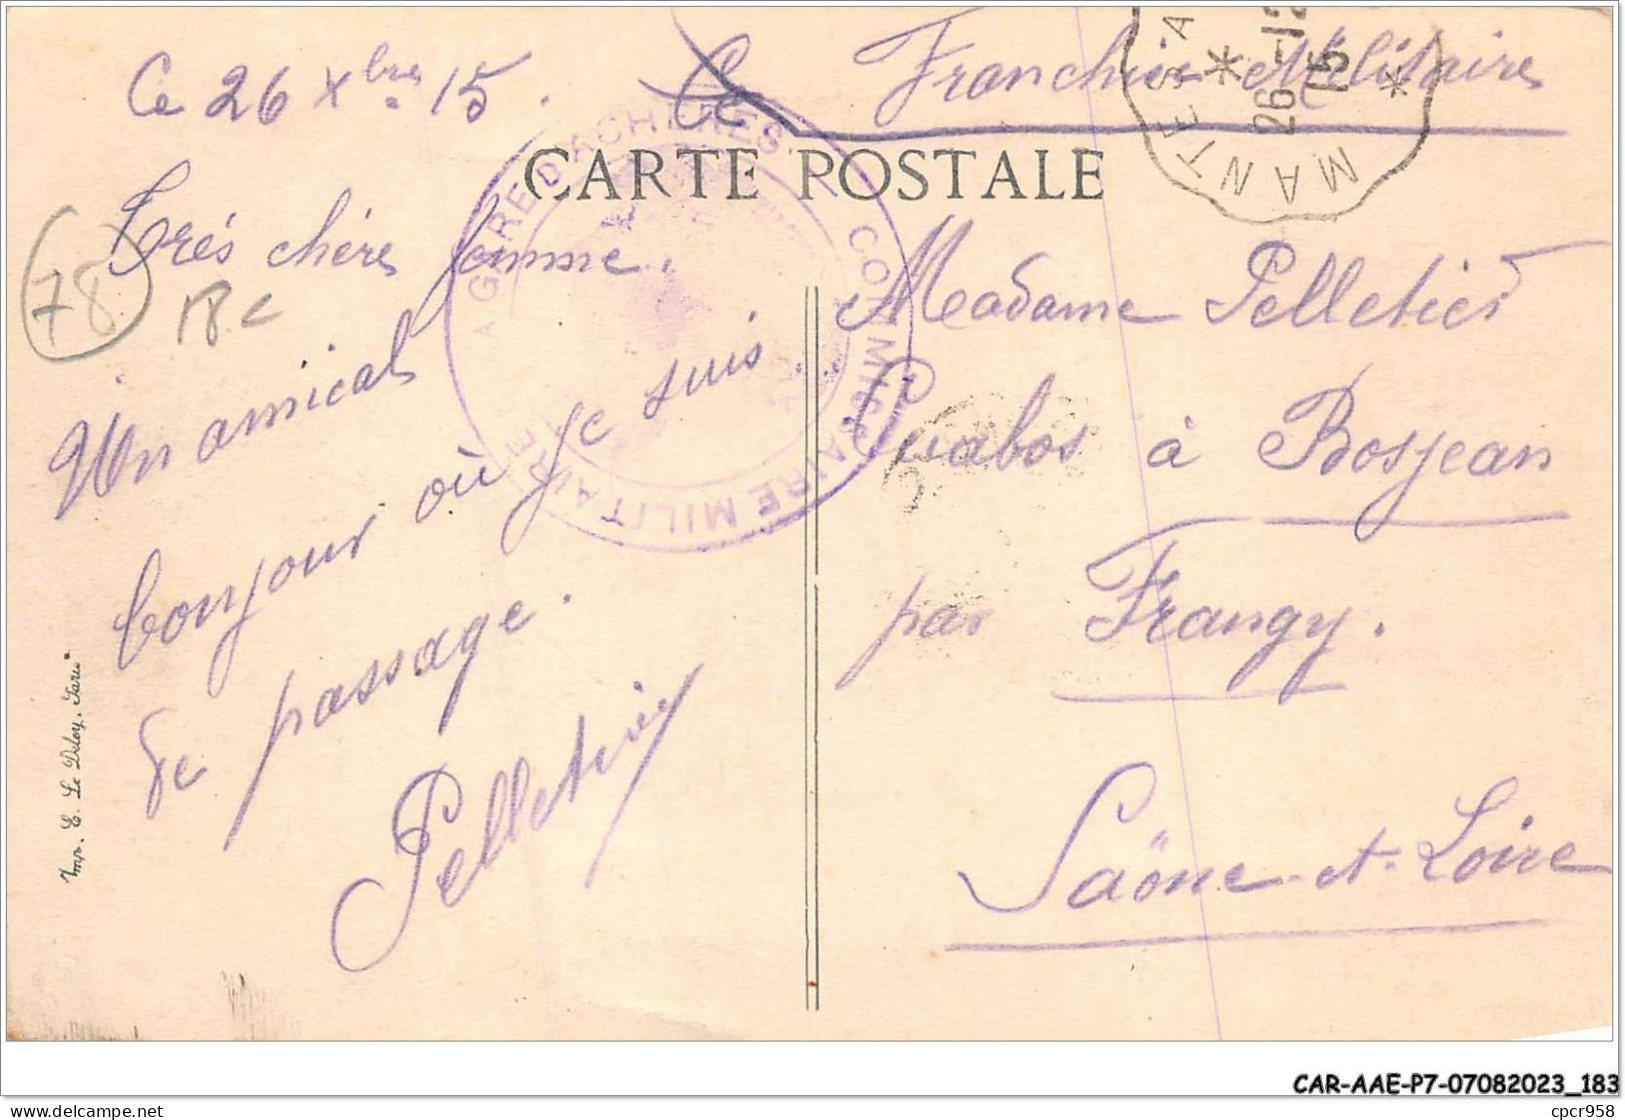 Ce 26 Xbre 15.
Franchise Militaire
MANTES A
26 -12
15
CARTE POSTALE
GARE D'ACHERES
COMMISSAIRE MILITAIRE
78
18c
Trés chère femme.
Un amical
bonjour où je suis
de passage.
Pelletier
Madame Pelletier
Quabos à Bosjean
par Frangy.
Saône-et-Loire
Imp. E. Le Deley, Paris
CAR-AAE-P7-07082023_183
delcampe.net
cpcr958